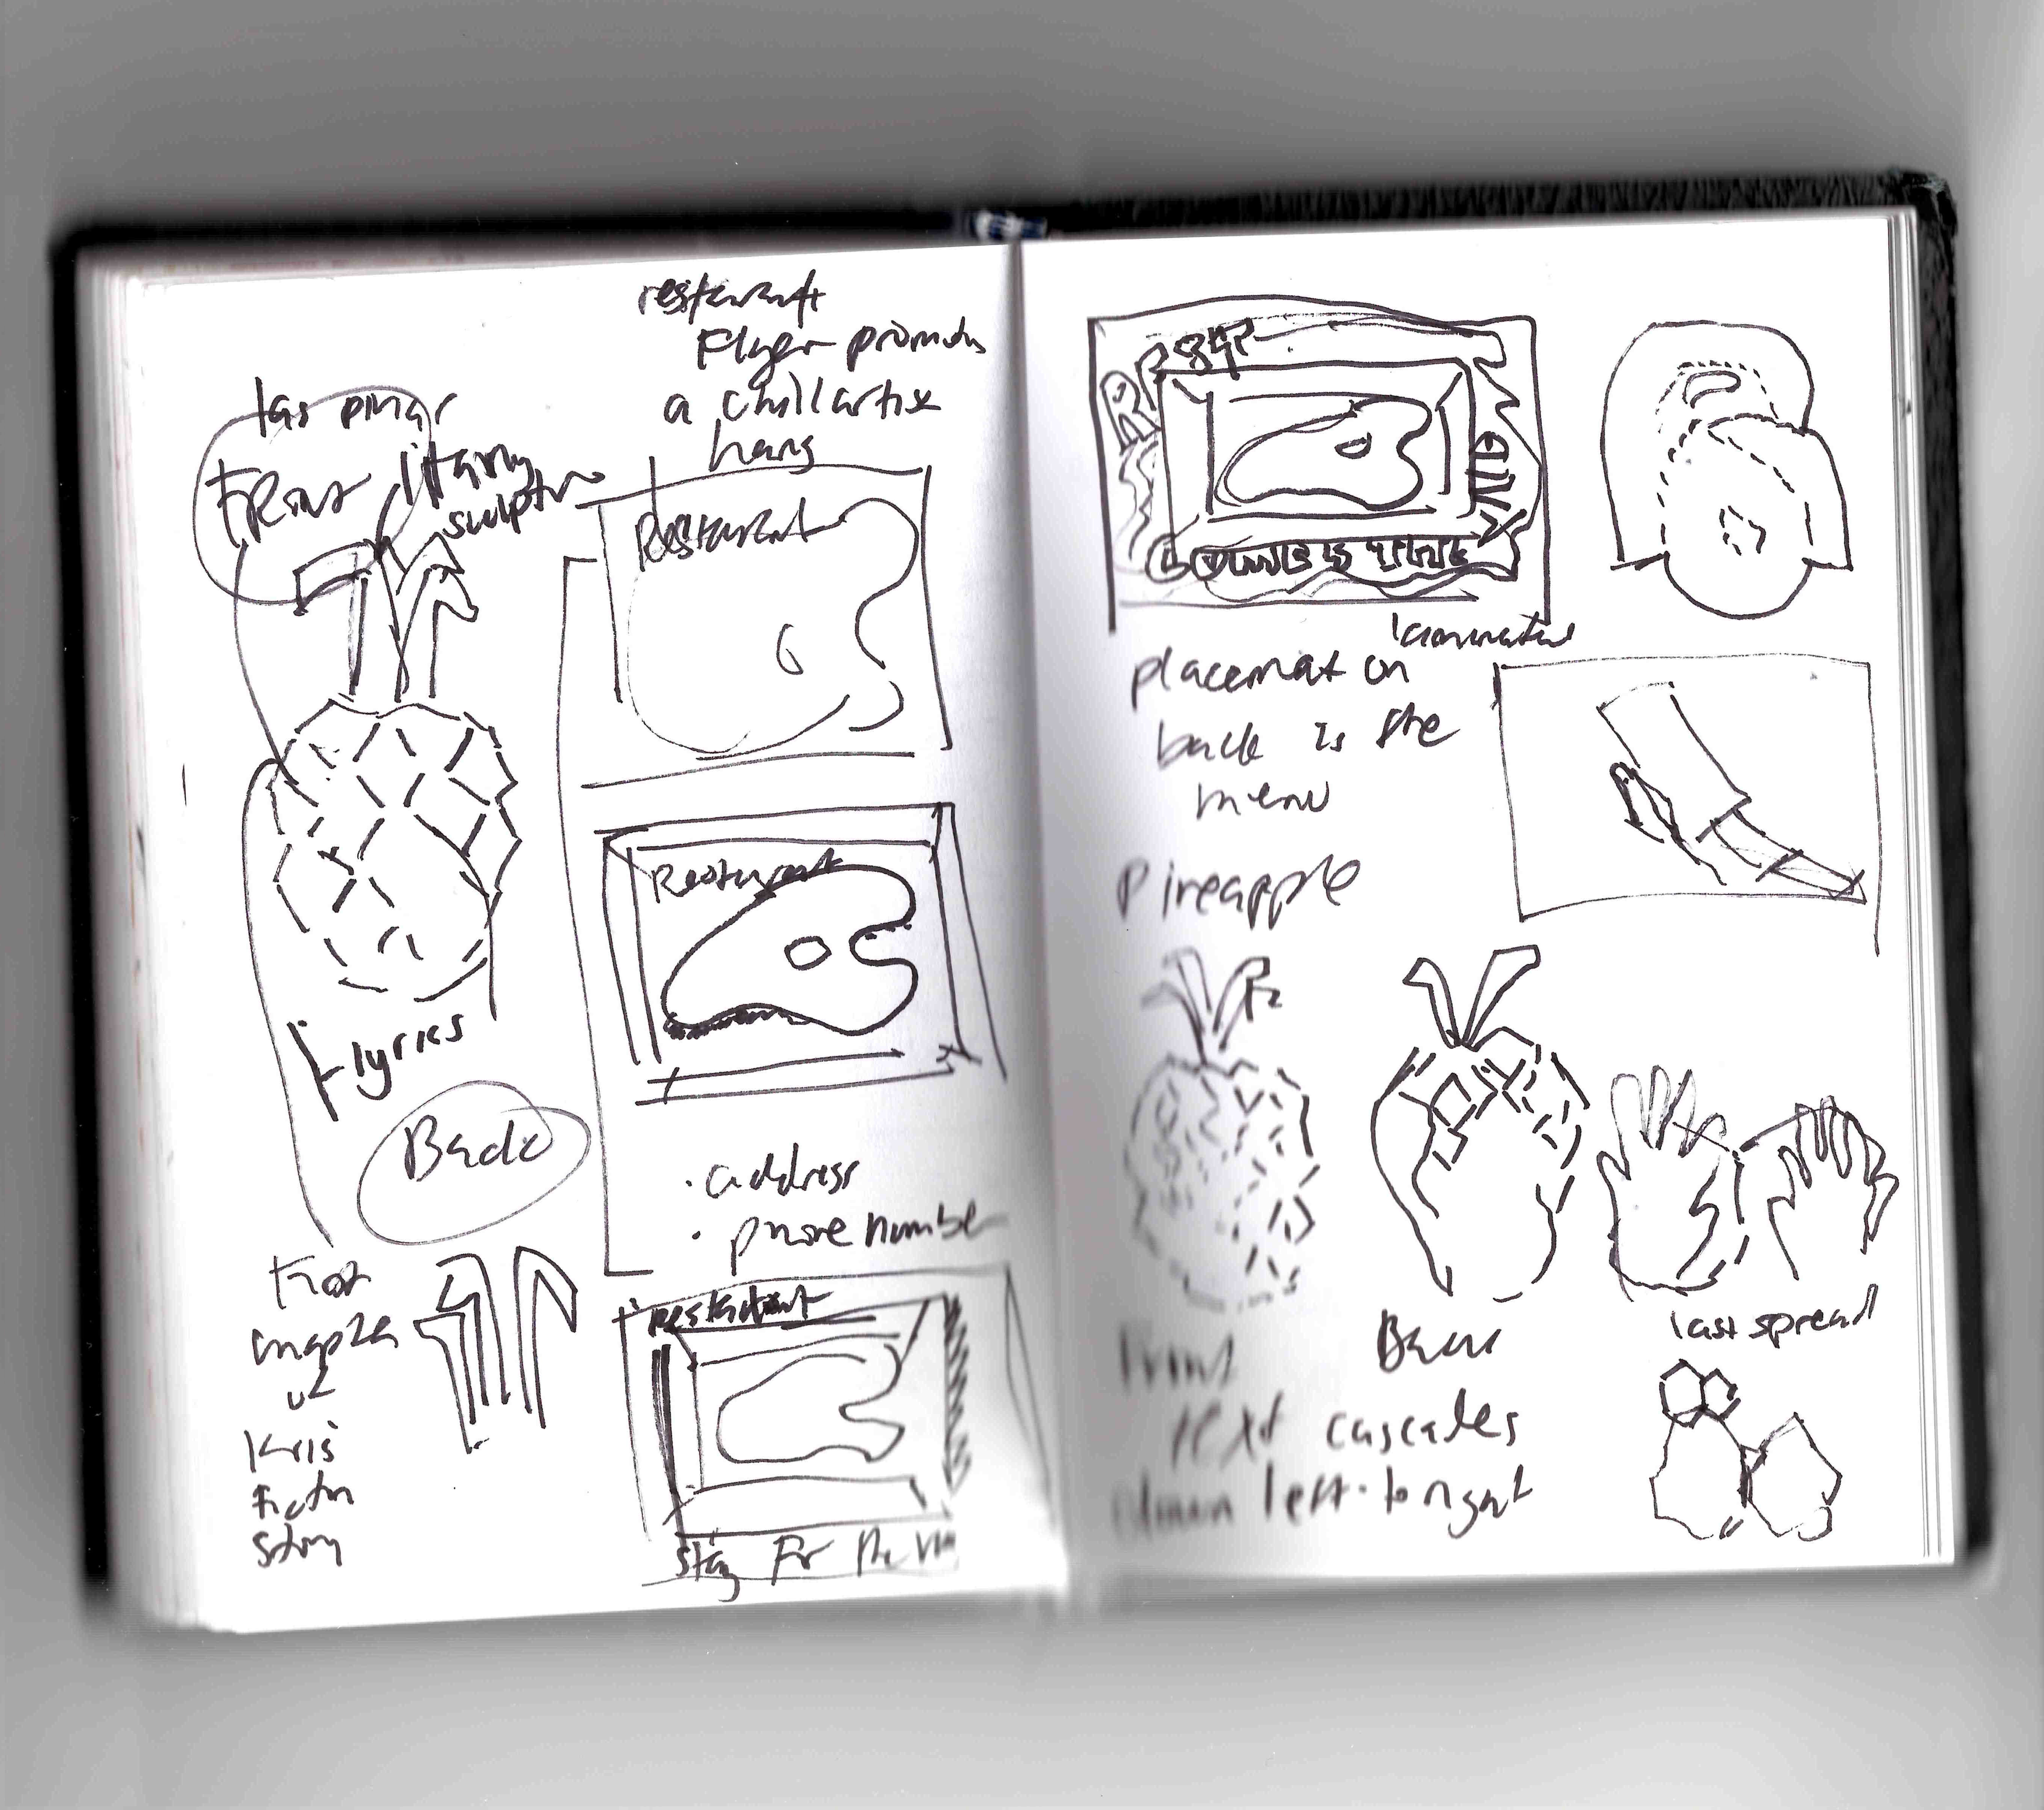 restaurant
Flyer promotes
a chill artist
hang
las pinas
Front
literary
sculpture
Restaurant
Restaurant
lyrics
Back
• address
• phone number
Kris
story
Restaurant
stay for the
laminated
placemat on
back is the
menu
Pineapple
Front
Back
last spread
text cascades
down left to right